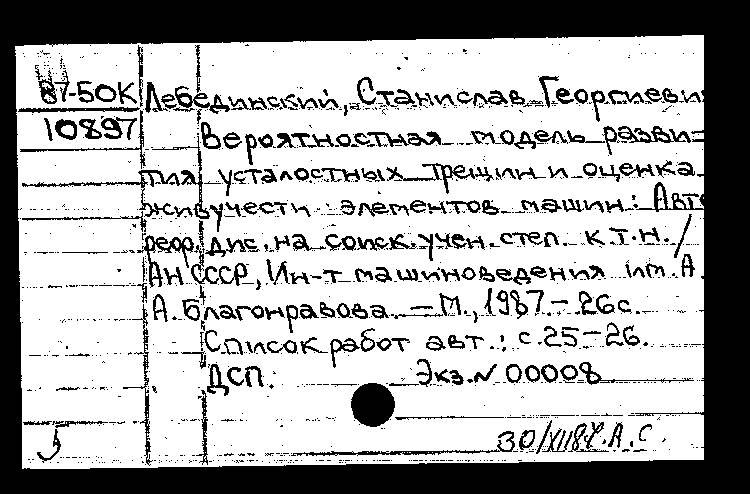 87-50К
10897
Лебединский, Станислав Георгиеви
Вероятностная модель разви=
тия усталостных трещин и оценка
живучести элементов машин: Авто
реф. дис. на соиск. учен. степ. к.т.н. /
АН СССР, Ин-т машиноведения им. А.
А. Благонравова. — М., 1987. — 26 с.
Список работ авт.: с. 25-26.
ДСП. Экз. № 00008
30/XII87. А.С.